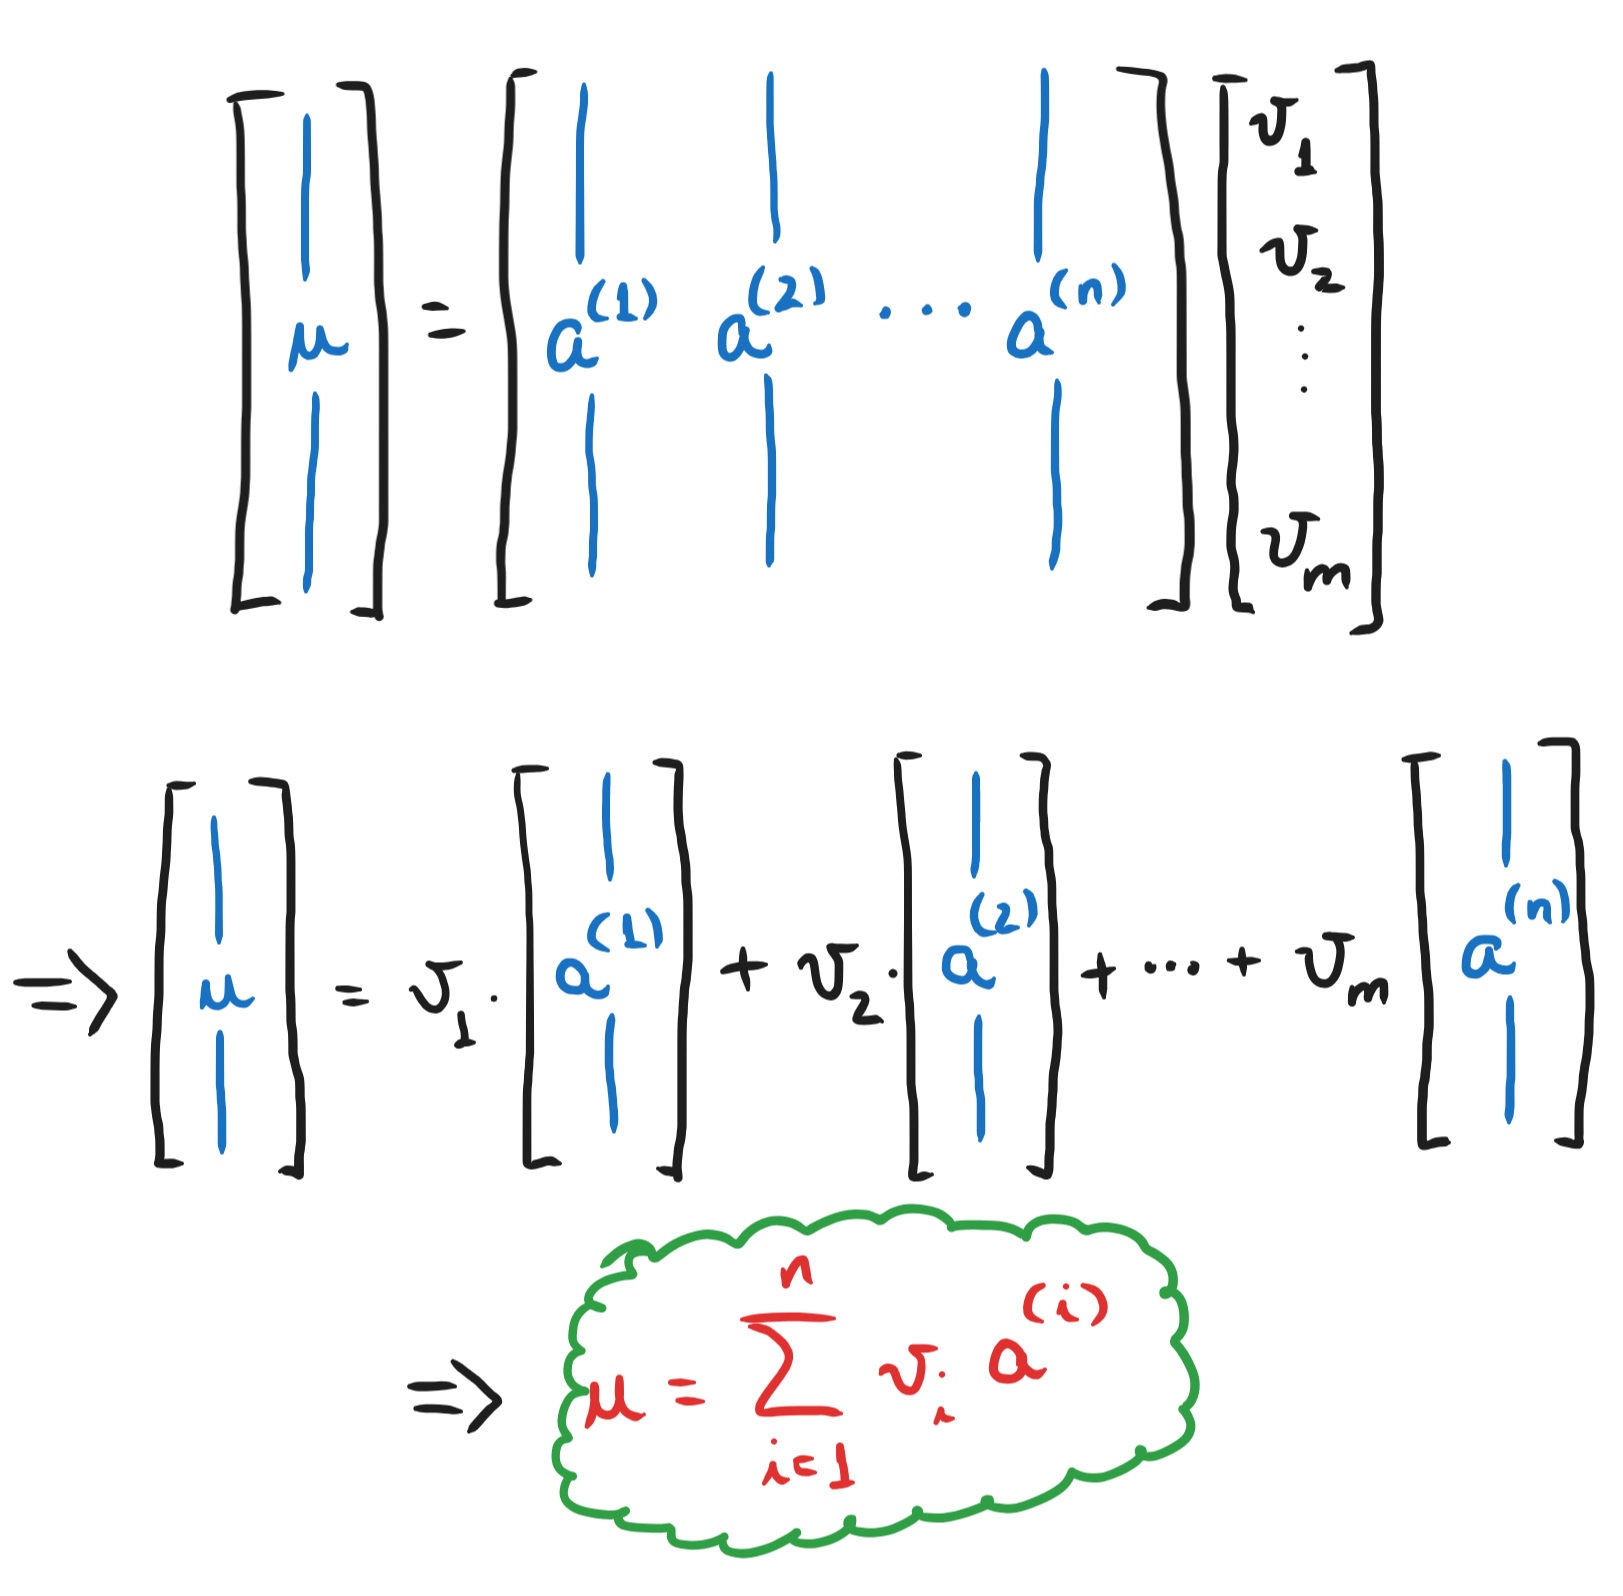 [μ] = [a^(1) a^(2) ... a^(n)] [v_1 v_2 ⋮ v_m]
⇒ [μ] = v_1 · [a^(1)] + v_2 · [a^(2)] + ... + v_m [a^(n)]
⇒ μ = ∑_{i=1}^{n} v_i a^(i)